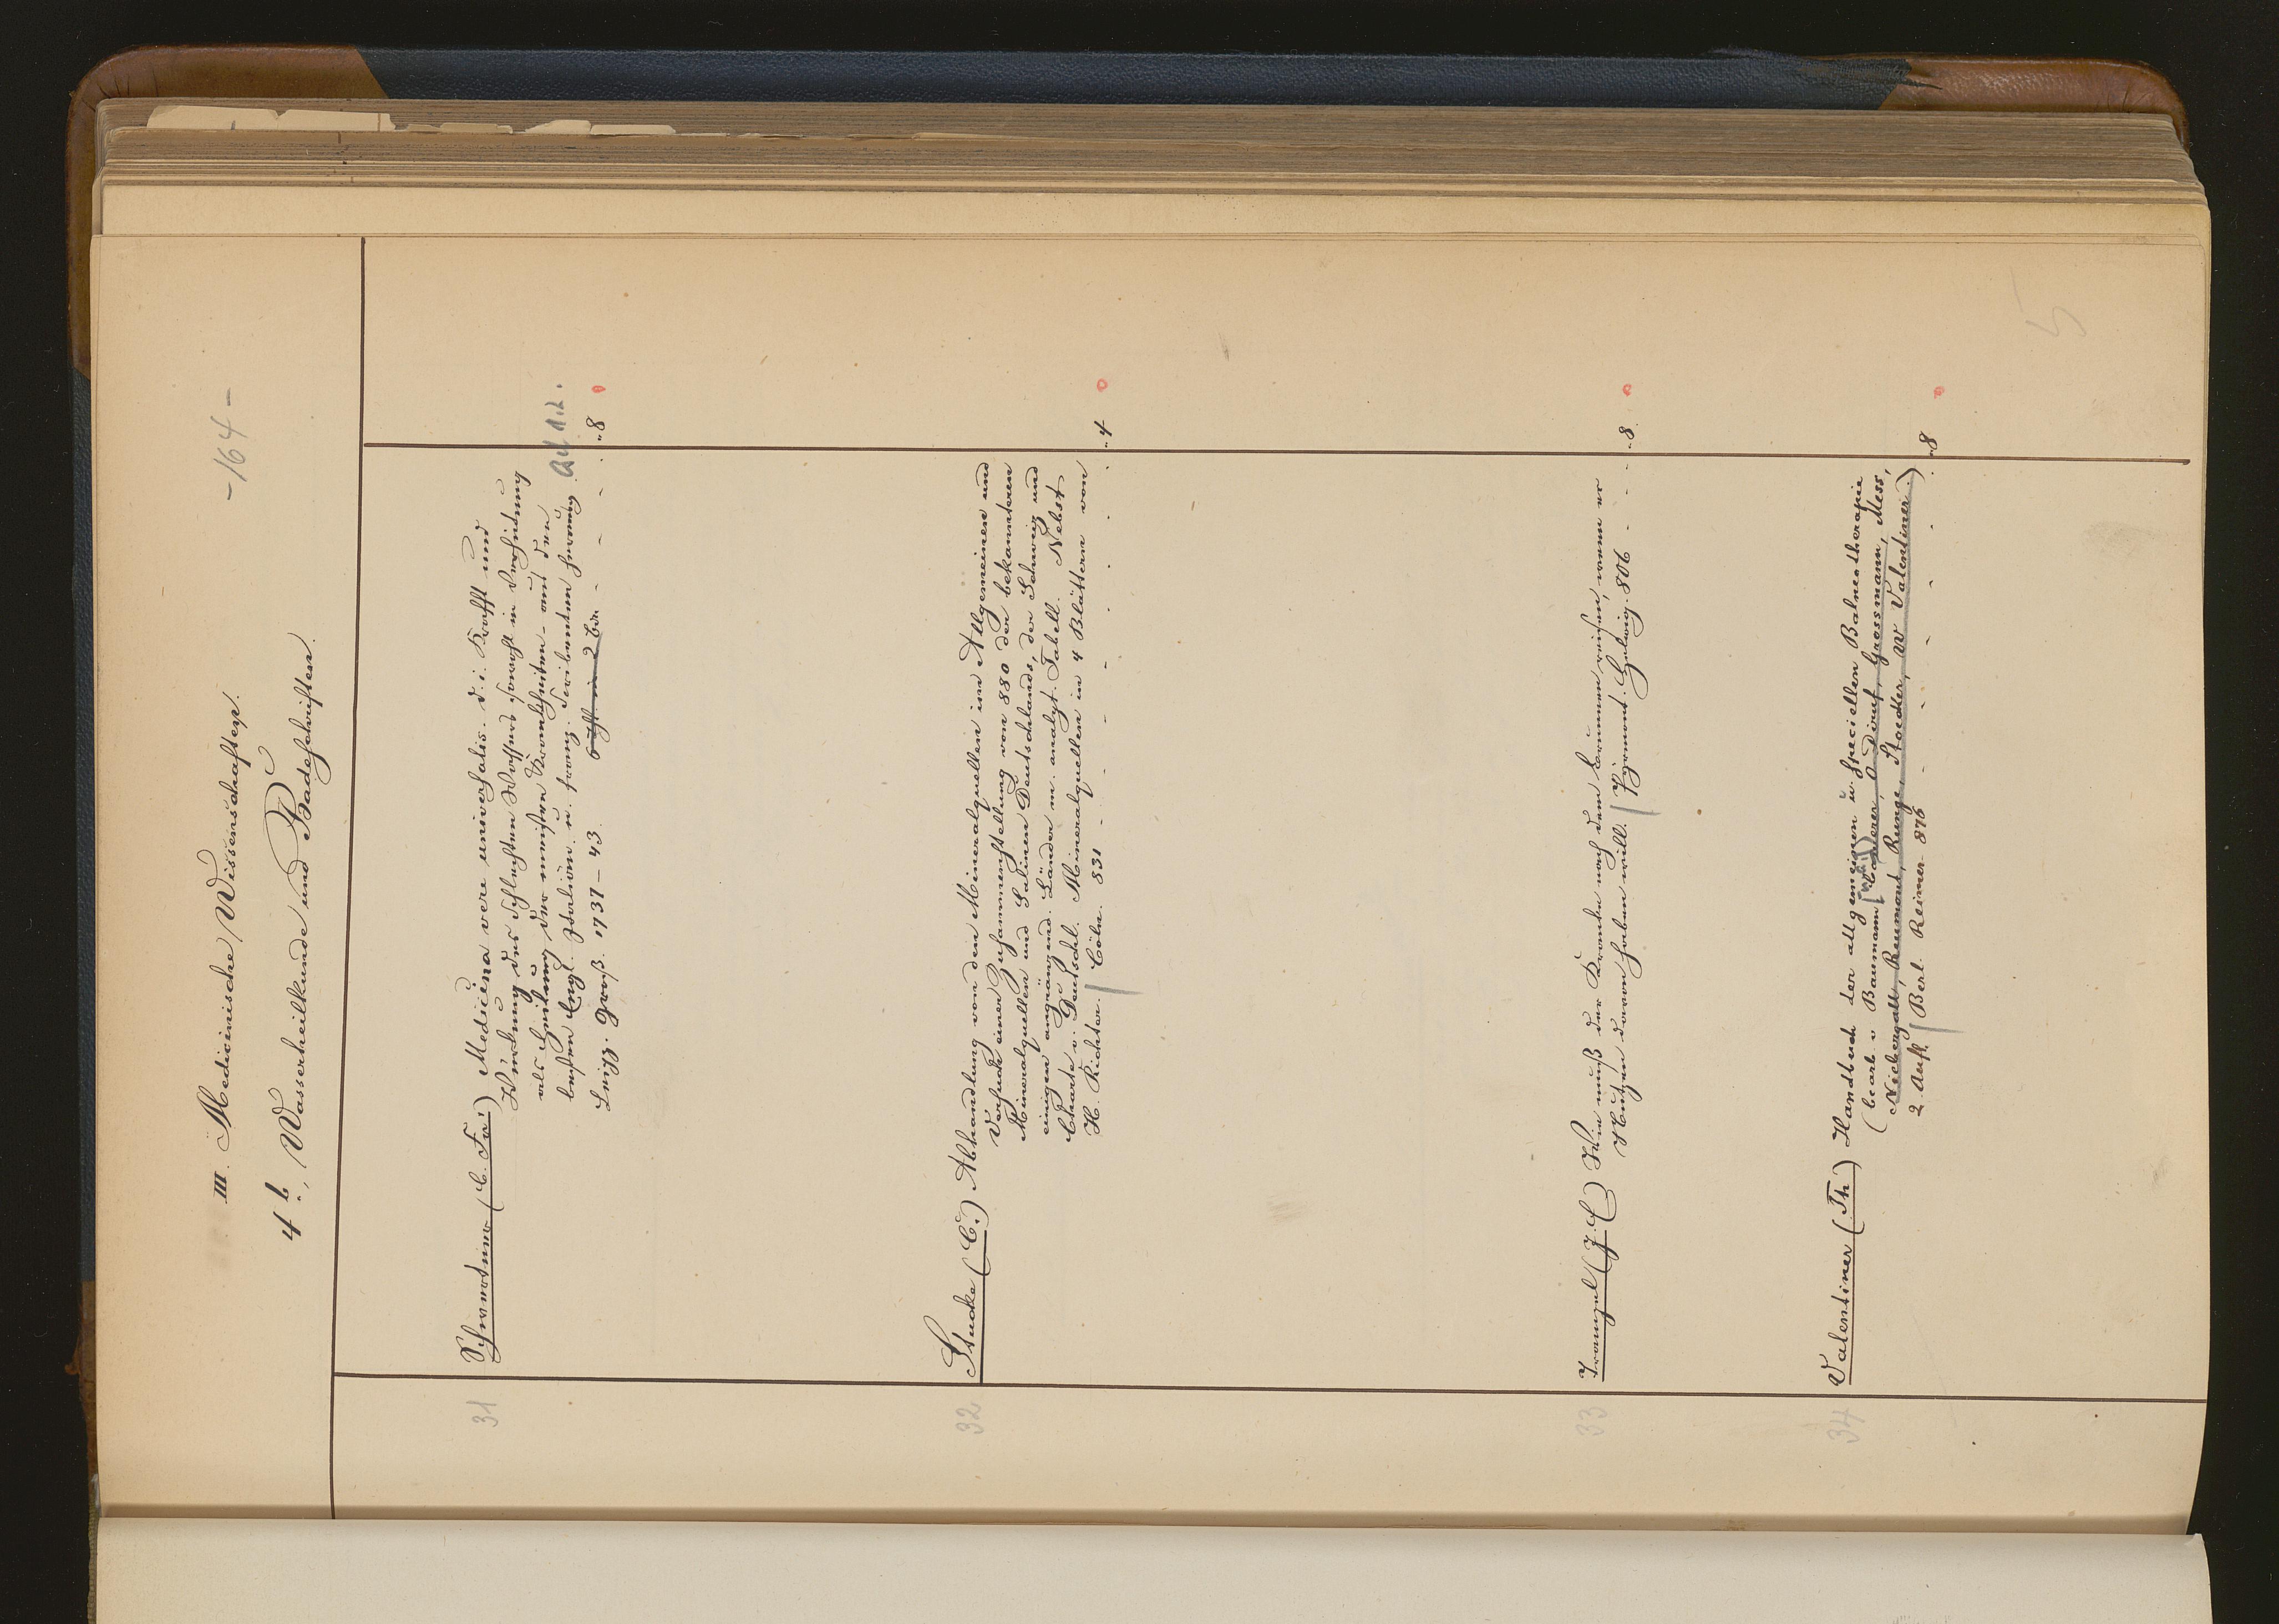 - 164 -
III. Medicinische Wissenschaften.
4 b., Wasserheilkunde und Badeschriften.
31
Schwertner (C. Fr.) Medicina vere universalis. d. i. Krafft und
Würkung des schlechten Wassers sowohl in Verhütung
als Heilung der meisten Krankheiten - aus den
besten Engl. Italiän. u. franz. Scribenten
Leipz. 1737 - 43. 6 Thl. in 2 Bdn - - - 8
32
Stucke (C.) Abhandlung von den Mineralquellen im Allgemeinen und
Versuch einer Zusammenstellung von 880 der bekannteren
Mineralquellen und Salinen Deutschlands, der Schweiz und
einigen angränzend. Länder m. analyt. Tabell. Nebst
Charte v. Deutschl. Mineralquellen in 4 Blättern von
H. Richter. Cöln. 831 - - - . . . . 4
33
Trampel (J. E) Wie muß der Kranke nach dem Brunnen reisen, wenn er
Nutzen davon haben will. Pyrmont. Helwig. 806 - - - 8
34
Valentiner (Th) Handbuch der allgemeinen u. speciellen Balneotherapie
(bearb. v Baumann, Diruf, Grossmann, Mess,
Niebergall, Reumont, Runge, Stoecker, W Valentiner.)
2. Aufl. Berl. Reimer. 876 - - - - - 8
5